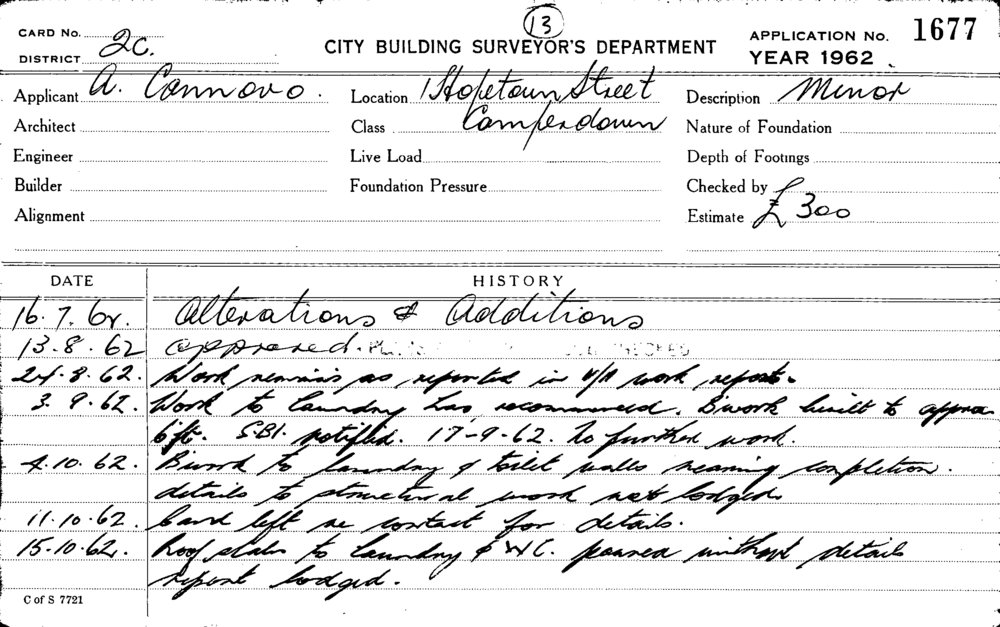 13
CARD No. 2C.
DISTRICT
CITY BUILDING SURVEYOR'S DEPARTMENT
APPLICATION No. 1677
YEAR 1962
Applicant A. Connovo.
Location 1 Hopetoun Street
Description Minor
Architect
Class Camperdown
Nature of Foundation
Engineer
Live Load
Depth of Footings
Builder
Foundation Pressure
Checked by
Alignment
Estimate £300
DATE HISTORY
16.7.62. Alterations & Additions
13.8.62 approved.
24.8.62. Work remains as reported in work report.
3.9.62. Work to laundry has recommenced. B'work built to approx
6ft. S.B.I. notified. 17-9-62. No further work.
4.10.62. B'work to laundry & toilet walls nearing completion.
details to structural work not lodged.
11.10.62. Card left re contact for details.
15.10.62. Roof slabs to laundry & W.C. poured without details
report lodged.
C of S 7721